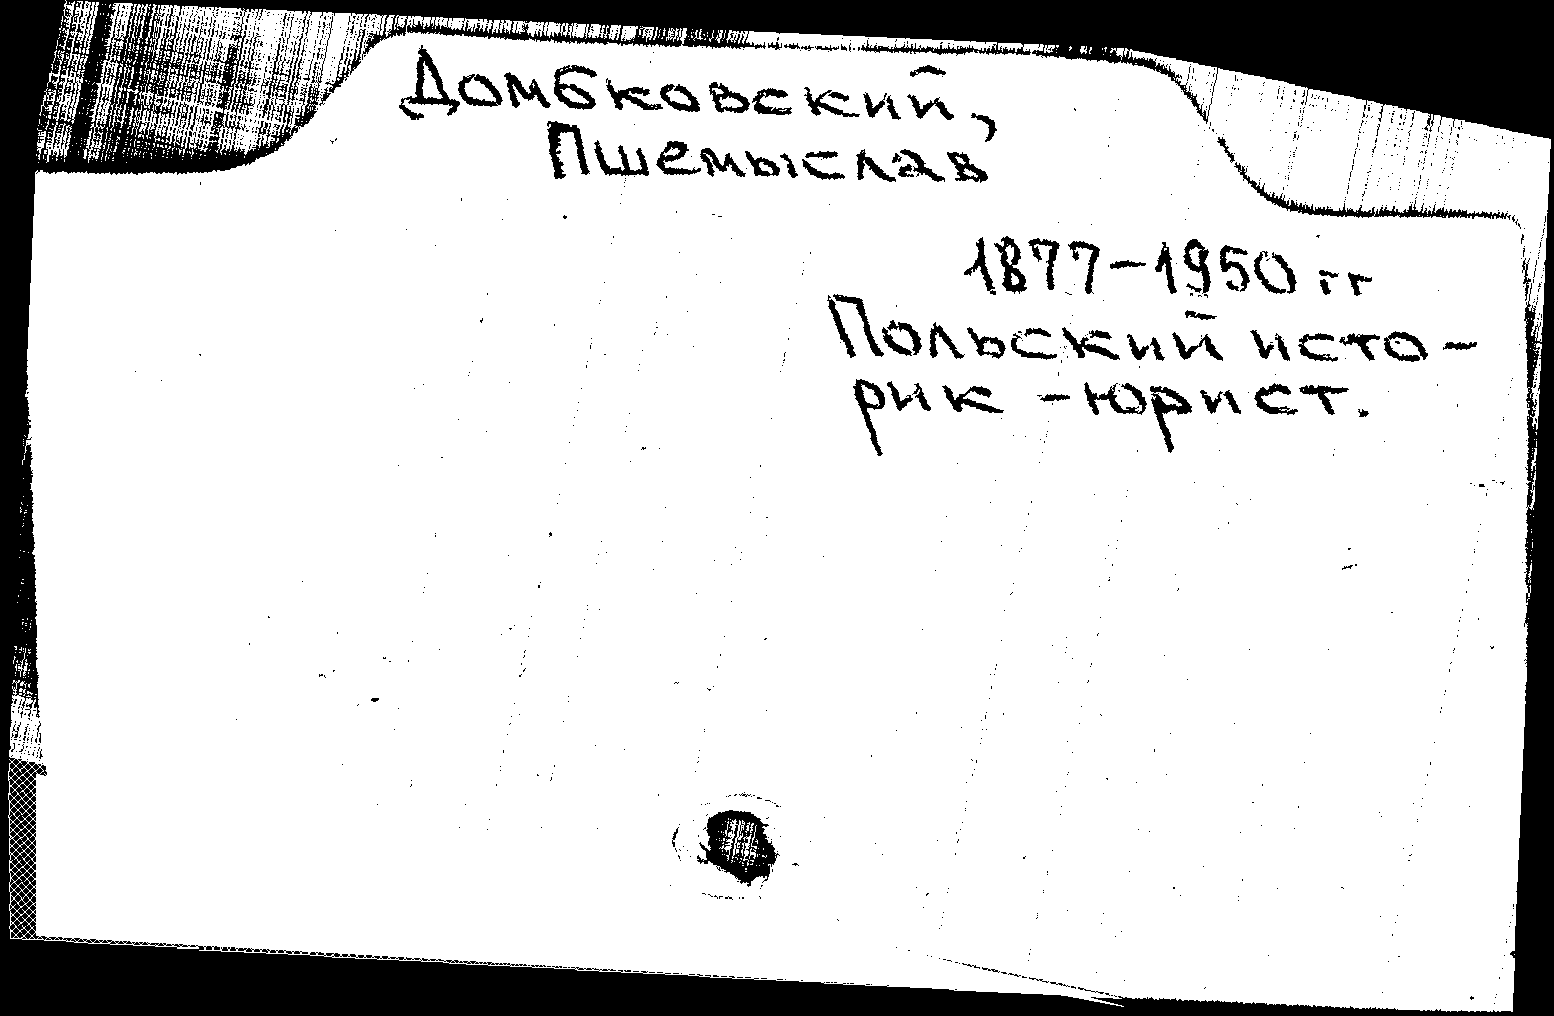 Домбковский,
Пшемыслав
1877-1950 гг
Польский исто-
рик-юрист.